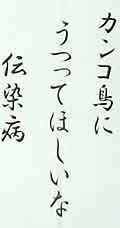 カンコ鳥に
うつってほしいな
伝染病